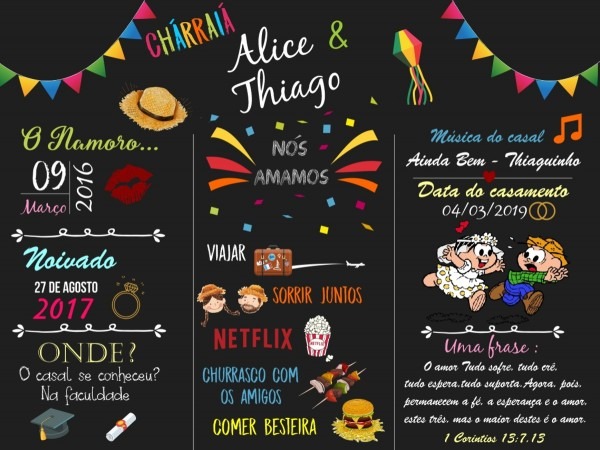 CHÁRRAIÁ
Alice &
Thiago
O Namoro...
09
Março
2016
Noivado
27 DE AGOSTO
2017
ONDE?
O casal se conheceu?
Na faculdade
NÓS
AMAMOS
VIAJAR
SORRIR JUNTOS
NETFLIX
NETFLIX
CHURRASCO COM
OS AMIGOS
COMER BESTEIRA
Música do casal
Ainda Bem - Thiaguinho
Data do casamento
04/03/2019
Uma frase :
O amor Tudo sofre, tudo crê,
tudo espera,tudo suporta.Agora, pois,
permanecem a fé, a esperança e o amor,
estes três, mas o maior destes é o amor.
1 Coríntios 13:7.13